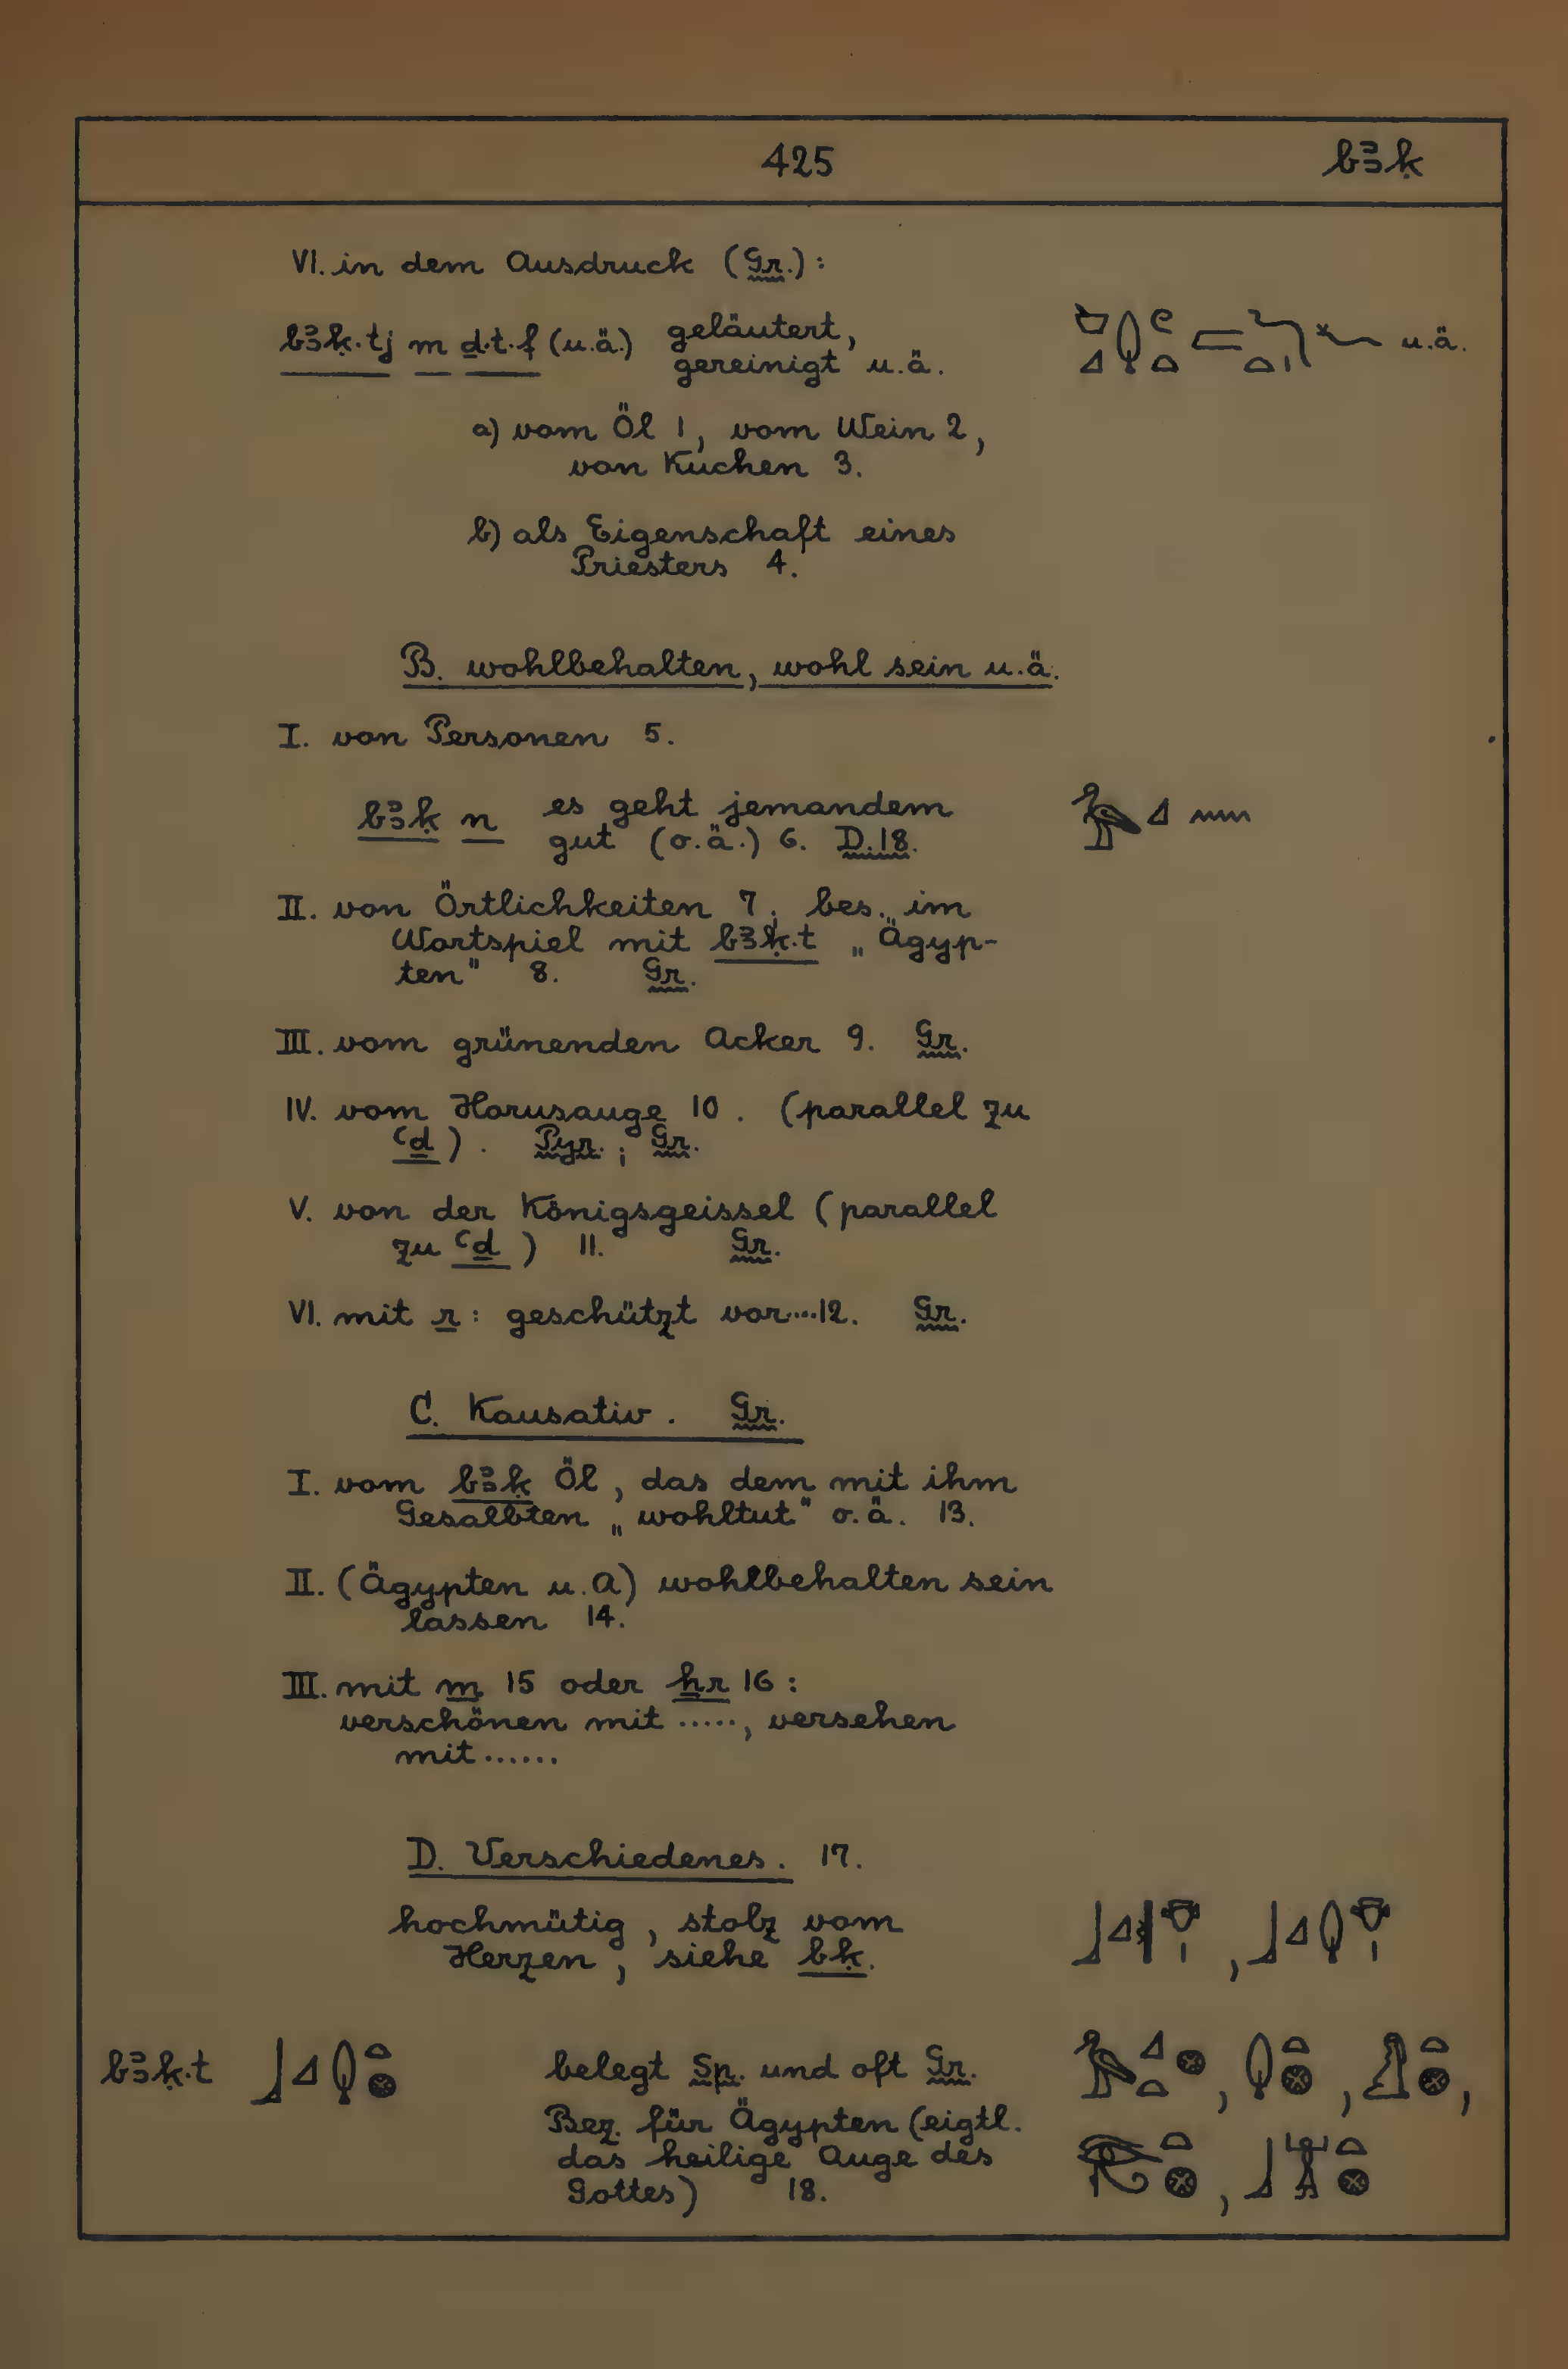 425 bꜣḳ
VI. in dem Ausdruck (Gr.):
bꜣḳ·tj m ḏ·t·f (u.ä.) geläutert,
gereinigt u.ä. u.ä.
a) vom Öl 1, vom Wein 2,
von Kuchen 3.
b) als Eigenschaft eines
Priesters 4.
B. wohlbehalten, wohl sein u.ä.
I. von Personen 5.
bꜣḳ n es geht jemandem
gut (o.ä.) 6. D.18.
II. von Örtlichkeiten 7; bes. im
Wortspiel mit bꜣḳ·t „Ägyp-
ten" 8. Gr.
III. vom grünenden Acker 9. Gr.
IV. vom Horusauge 10. (parallel zu
ꜥḏ). Pyr.; Gr.
V. von der Königsgeissel (parallel
zu ꜥḏ) 11. Gr.
VI. mit r: geschützt vor....12. Gr.
C. Kausativ. Gr.
I. vom bꜣḳ Öl, das dem mit ihm
Gesalbten „wohltut" o.ä. 13.
II. (Ägypten u.A) wohlbehalten sein
lassen 14.
III. mit m 15 oder ẖr 16:
verschönen mit ....., versehen
mit......
D. Verschiedenes. 17.
hochmütig, stolz vom
Herzen, siehe bḳ.
bꜣḳ·t belegt Sp. und oft Gr.
Bez. für Ägypten (eigtl.
das heilige Auge des
Gottes) 18.